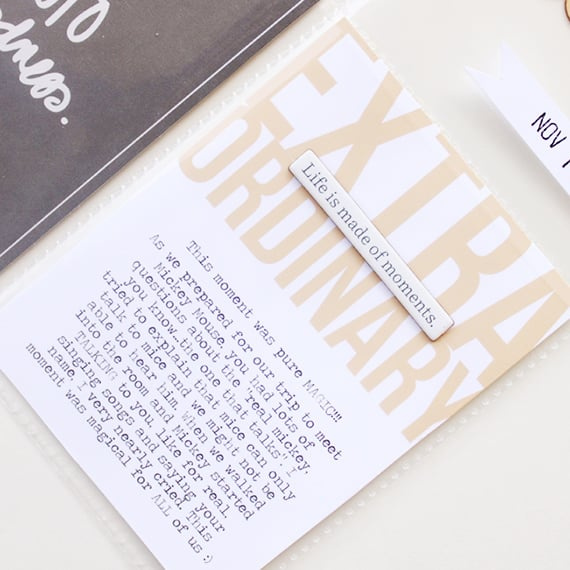 EXTRA
ORDINARY
Life is made of moments.
NOV 1
This moment was pure MAGIC!!!
As we prepared for our trip to meet
Mickey Mouse, you had lots of
questions about the "real mickey,
you know...the one that talks". I
tried to explain that mice can only
talk to mice and we might not be
able to hear him. When we walked
into the room and Mickey started
TALKING to you, like for real.
singing songs and saying your
name, I very nearly cried. This
moment was magical for ALL of us :)